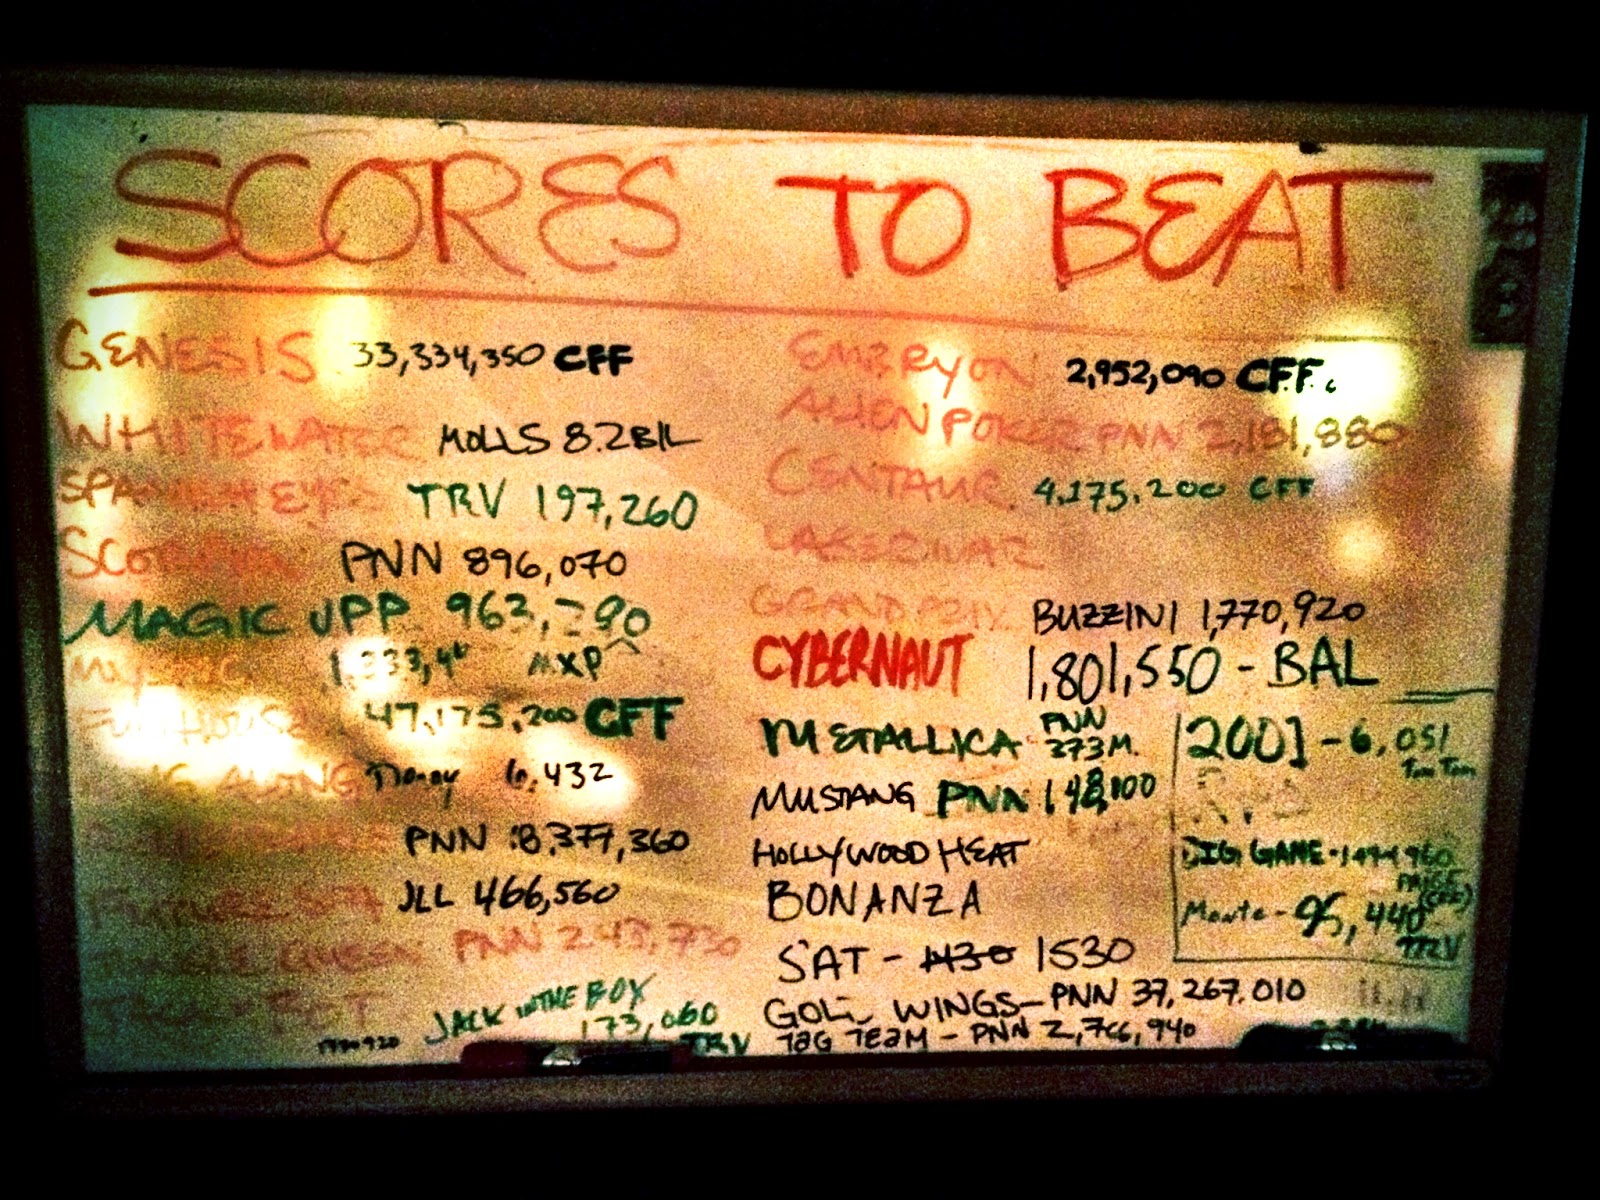 SCORES TO BEAT
GENESIS 33,334,350 CFF
WHITEWATER MOLLS 8.2BIL
SPANISH EYES TRV 197,260
SCORPION PNN 896,070
MAGIC JPP 963,280
MYSTIC MXP
FUNHOUSE 47,175,200 CFF
ALONG 6,432
PNN 8,377,360
JLL 466,560
QUEEN PNN 243,730
JACK IN THE BOX
173,060
TRV
EMBRYON 2,952,090 CFF.
ALIEN POKER PNN 2,181,880
CENTAUR 4,175,200 CFF
LASER WAR
GRAND PRIX BUZZINI 1,770,920
CYBERNAUT 1,801,550 - BAL
METALLICA PNN 273M.
MUSTANG PNN 148,100
HOLLYWOOD HEAT
BONANZA
SAT - 1430 1530
GOLD WINGS - PNN 37,267.010
TAG TEAM - PNN 2,766,940
2001 - 6,051
Tom Tom
BIG GAME -
Monte - 95,440